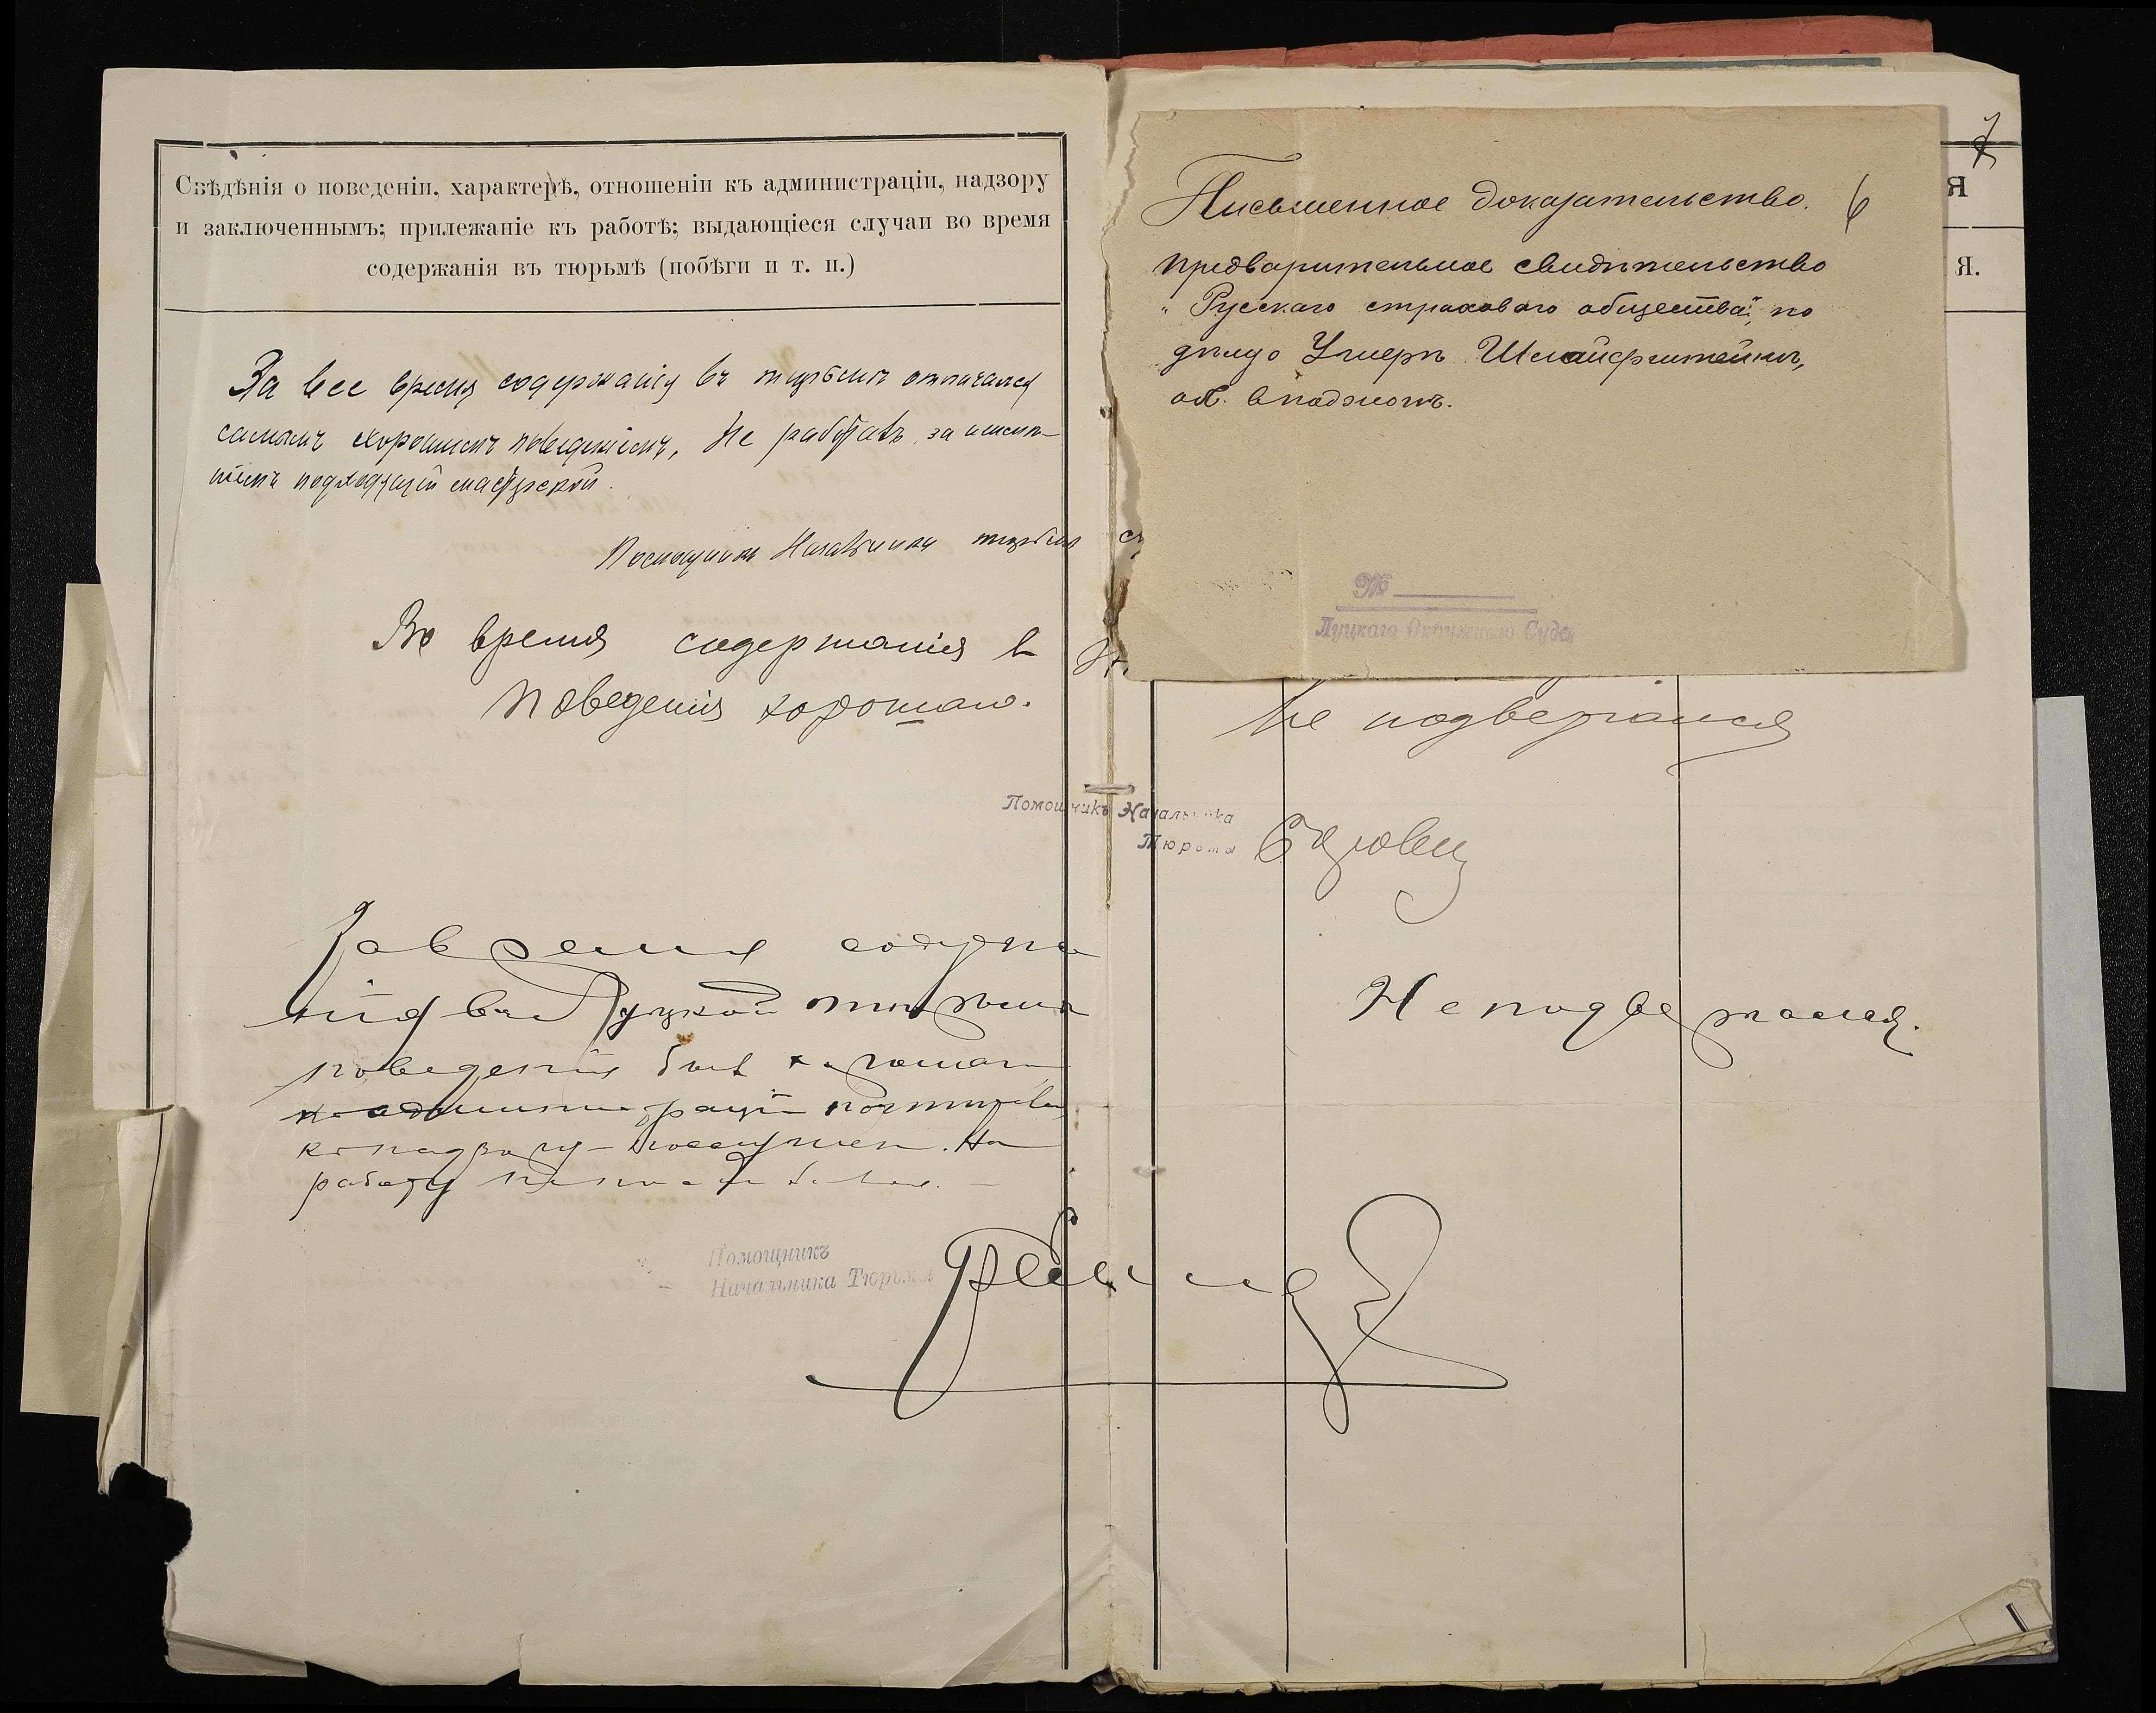 Свѣдѣнія о поведеніи, характерѣ, отношеніи къ администраціи, надзору
и заключеннымъ; прилежаніе къ работѣ; выдающіеся случаи во время
содержанія въ тюрьмѣ (побѣги и т. п.)
За все время содержанія въ тюрьмѣ отличался
самымъ хорошимъ поведеніемъ, Не работалъ за неимѣ-
ніемъ подходящей мастерской.
Помощникъ Начальника тюрьмы
Во время содержанія в
поведенія хорошаго.
Помощникъ Начальника
Тюрьмы
За время содержа
нія въ Луцкой тюрьмѣ
поведенія былъ хорошаго
к администраціи почтителен
к надзору – послушен. На
работу
Помощникъ
Начальника Тюрьмы
7
Я
Я.
Письменное доказательство. 6
предварительное свидѣтельство
„Русскаго страховаго общества", по
дѣлу о Умерѣ Шлайфштейнъ,
об. въ поджогѣ.
№
Луцкаго Окружнаго Суда
Не подвергался
Не подвергался.